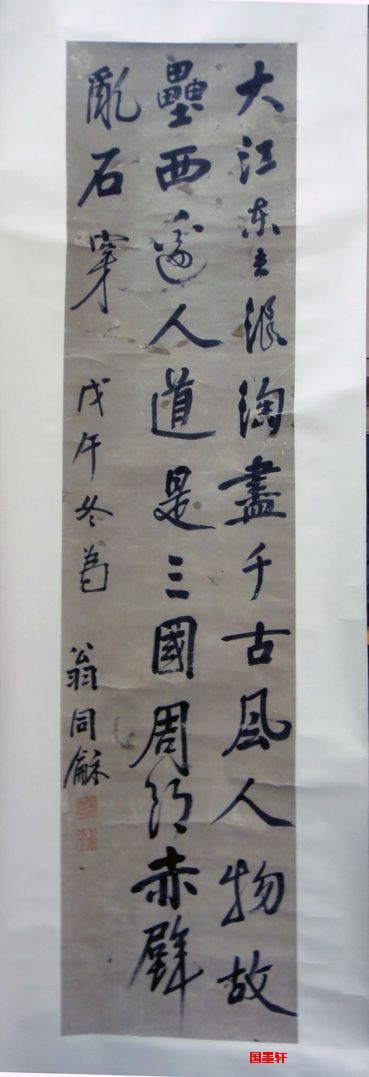 大江东去浪淘盡千古風人物故
壘西邊人道是三國周郎赤壁
亂石穿
戊午冬為
翁同龢
国墨轩